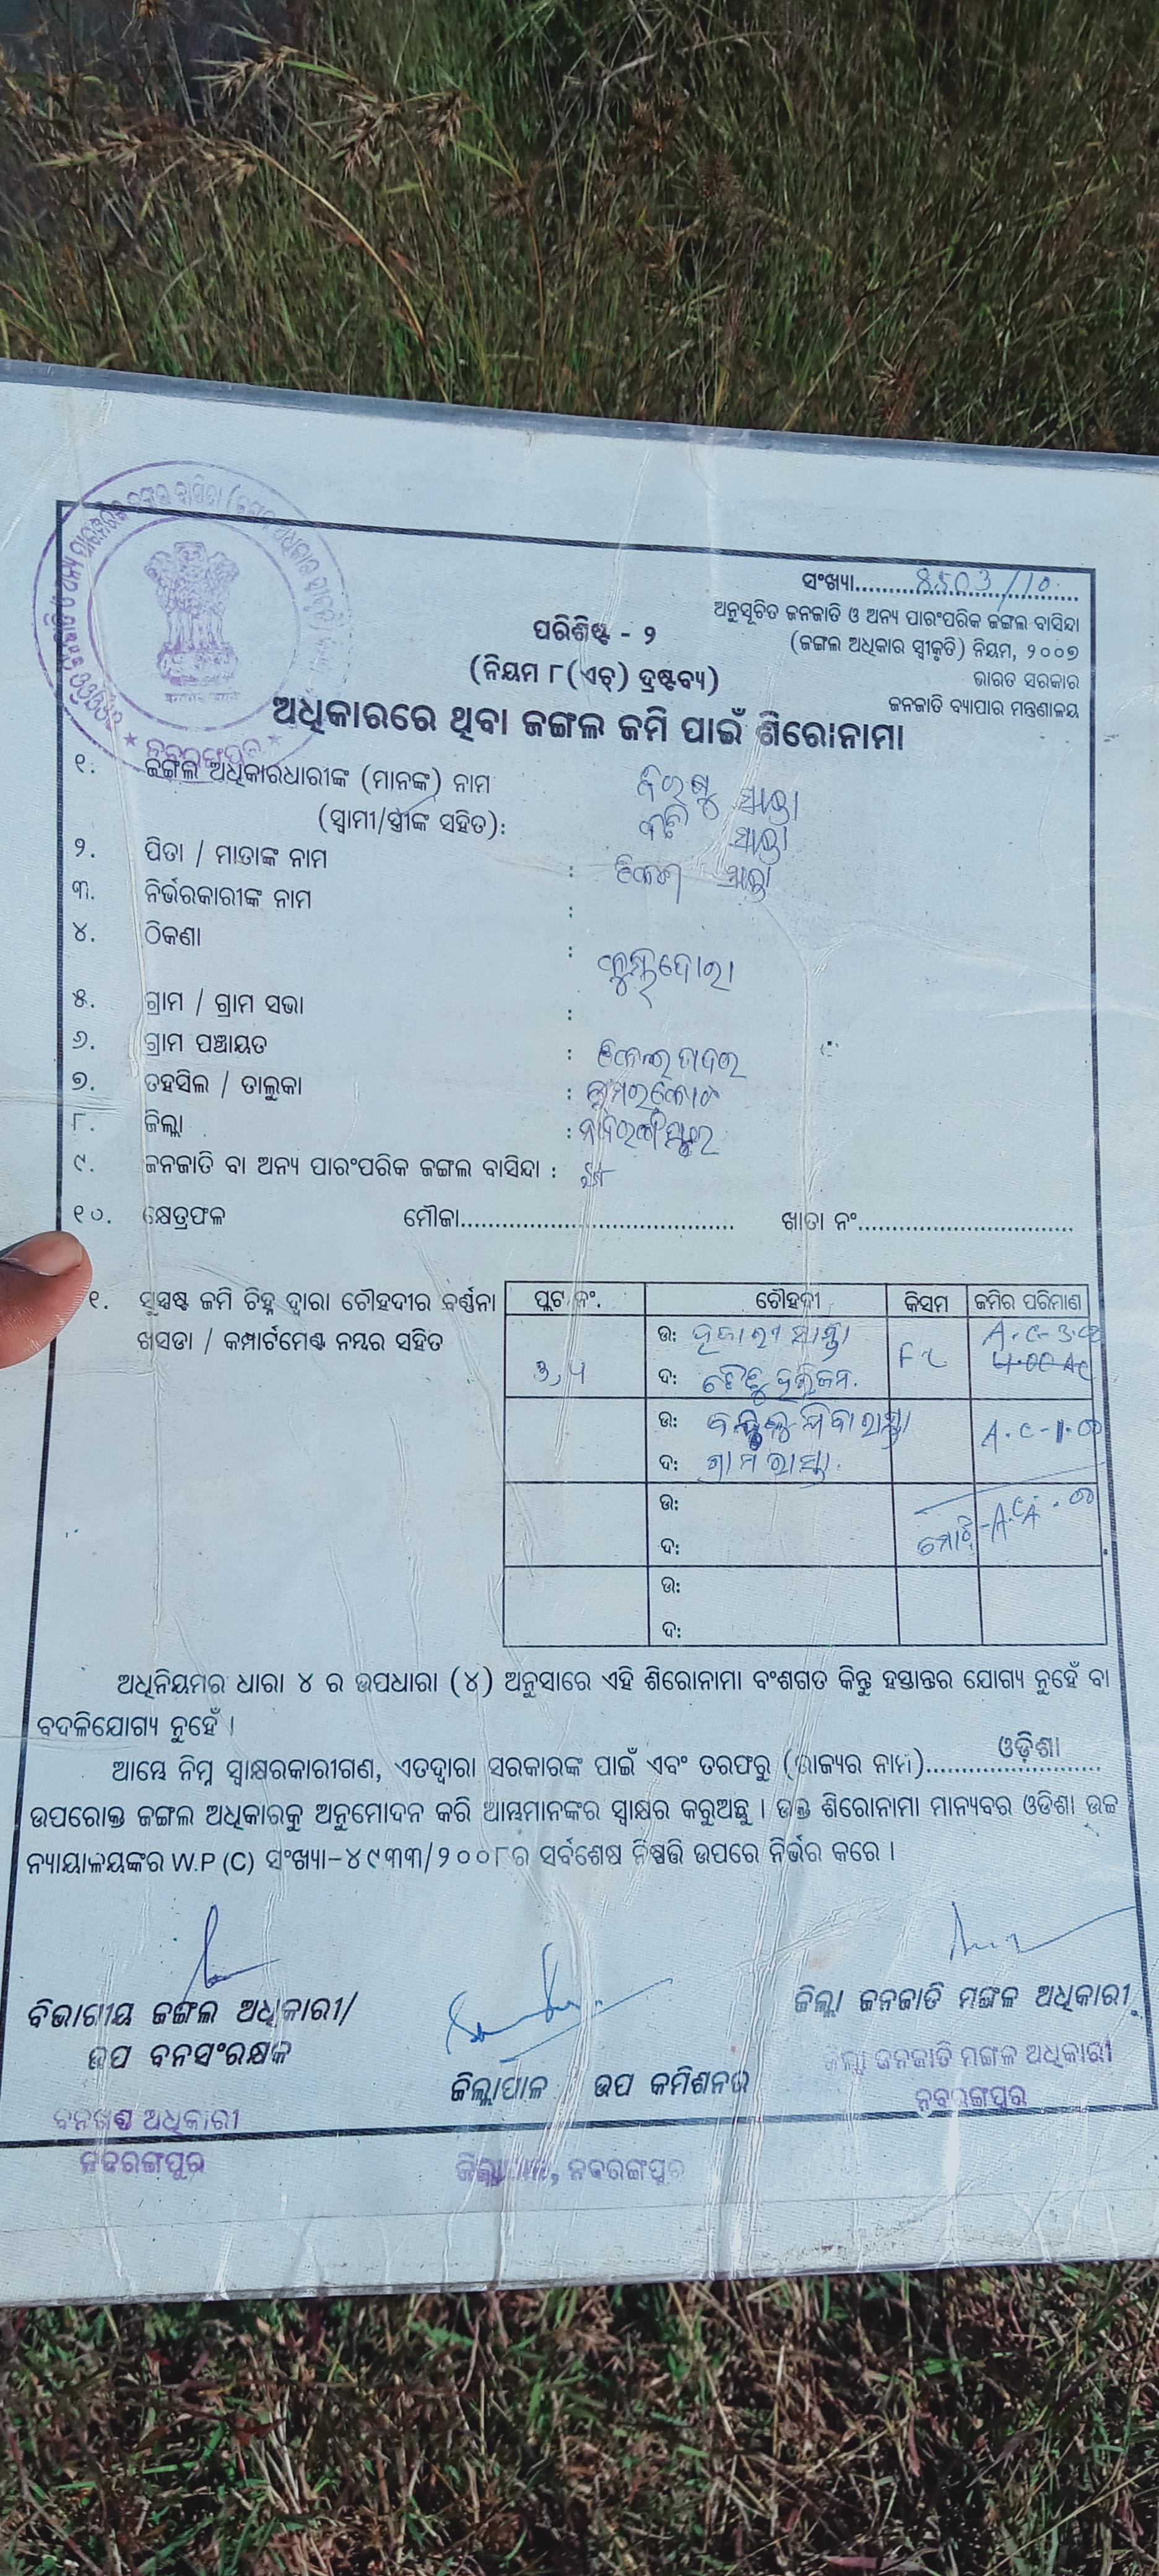 ସଂଖ୍ୟା........8503/10........
ଅନୁସୂଚିତ ଜନଜାତି ଓ ଅନ୍ୟ ପାରଂପରିକ ଜଙ୍ଗଲ ବାସିନ୍ଦା
(ଜଙ୍ଗଲ ଅଧିକାର ସ୍ୱୀକୃତି) ନିୟମ, ୨୦୦୭
ଭାରତ ସରକାର
ଜନଜାତି ବ୍ୟାପାର ମନ୍ତ୍ରଣାଳୟ
ପରିଶିଷ୍ଟ - ୨
(ନିୟମ ୮(ଏଚ୍) ଦ୍ରଷ୍ଟବ୍ୟ)
ଅଧିକାରରେ ଥିବା ଜଙ୍ଗଲ ଜମି ପାଇଁ ଶିରୋନାମା
ନବରଙ୍ଗପୁର
୧. ଜଙ୍ଗଲ ଅଧିକାରଧାରୀଙ୍କ (ମାନଙ୍କ) ନାମ
(ସ୍ୱାମୀ/ସ୍ତ୍ରୀଙ୍କ ସହିତ):
୨. ପିତା / ମାତାଙ୍କ ନାମ :
୩. ନିର୍ଭରକାରୀଙ୍କ ନାମ :
୪. ଠିକଣା :
୫. ଗ୍ରାମ / ଗ୍ରାମ ସଭା :
୬. ଗ୍ରାମ ପଞ୍ଚାୟତ :
୭. ତହସିଲ / ତାଲୁକା : ଉମରକୋଟ
୮. ଜିଲ୍ଲା : ନବରଙ୍ଗପୁର
୯. ଜନଜାତି ବା ଅନ୍ୟ ପାରଂପରିକ ଜଙ୍ଗଲ ବାସିନ୍ଦା :
୧୦. କ୍ଷେତ୍ରଫଳ ମୌଜା.................................... ଖାତା ନଂ.............................
୧. ସୁସ୍ପଷ୍ଟ ଜମି ଚିହ୍ନ ଦ୍ୱାରା ଚୌହଦୀର ବର୍ଣ୍ଣନା
ଖସଡା / କମ୍ପାର୍ଟମେଣ୍ଟ ନମ୍ବର ସହିତ
ପ୍ଲଟ ନଂ. ଚୌହଦୀ କିସମ ଜମିର ପରିମାଣ
ଉ: A.C-3.00
ଦ: ହରିଜନ. 4.00 AC
ଉ: A.C-1.00
ଦ: ଗ୍ରାମ ରାସ୍ତା.
ଉ:
ଦ: ମୋଟ-A.C4.00
ଉ:
ଦ:
ଅଧିନିୟମର ଧାରା ୪ ର ଉପଧାରା (୪) ଅନୁସାରେ ଏହି ଶିରୋନାମା ବଂଶଗତ କିନ୍ତୁ ହସ୍ତାନ୍ତର ଯୋଗ୍ୟ ନୁହେଁ ବା
ବଦଳିଯୋଗ୍ୟ ନୁହେଁ ।
ଆମ୍ଭେ ନିମ୍ନ ସ୍ୱାକ୍ଷରକାରୀଗଣ, ଏତଦ୍ୱାରା ସରକାରଙ୍କ ପାଇଁ ଏବଂ ତରଫରୁ (ରାଜ୍ୟର ନାମ)..........ଓଡ଼ିଶା..........
ଉପରୋକ୍ତ ଜଙ୍ଗଲ ଅଧିକାରକୁ ଅନୁମୋଦନ କରି ଆମ୍ଭମାନଙ୍କର ସ୍ୱାକ୍ଷର କରୁଅଛୁ । ଉକ୍ତ ଶିରୋନାମା ମାନ୍ୟବର ଓଡିଶା ଉଚ୍ଚ
ନ୍ୟାୟାଳୟଙ୍କର W.P (C) ସଂଖ୍ୟା-୪୯୩୩/୨୦୦୮ର ସର୍ବଶେଷ ନିଷ୍ପତ୍ତି ଉପରେ ନିର୍ଭର କରେ ।
ବିଭାଗୀୟ ଜଙ୍ଗଲ ଅଧିକାରୀ/
ଉପ ବନସଂରକ୍ଷକ
ବନଖଣ୍ଡ ଅଧିକାରୀ
ନବରଙ୍ଗପୁର
ଜିଲ୍ଲାପାଳ / ଉପ କମିଶନର
ଜିଲ୍ଲାପାଳ, ନବରଙ୍ଗପୁର
ଜିଲ୍ଲା ଜନଜାତି ମଙ୍ଗଳ ଅଧିକାରୀ
ଜିଲ୍ଲା ଜନଜାତି ମଙ୍ଗଳ ଅଧିକାରୀ
ନବରଙ୍ଗପୁର